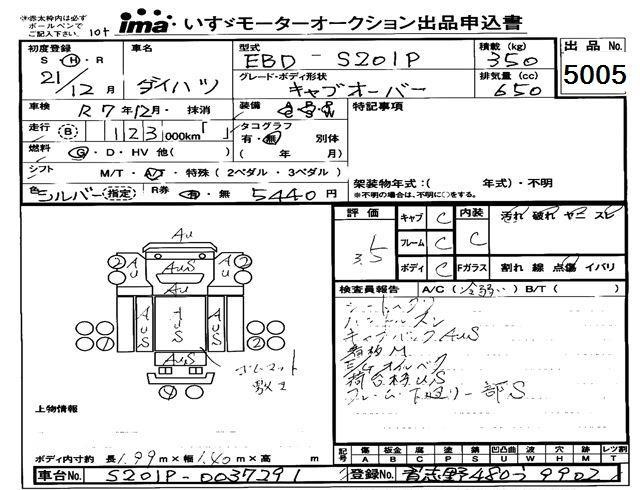 ※赤太枠内は必ず
ボールペンで
ご記入下さい。
10t
ima いすゞモーターオークション出品申込書
初度登録
S・H・R
21/12月
車名
ダイハツ
型式
EBD-S201P
グレード・ボディ形状
キャブオーバー
積載 (kg)
350
排気量 (cc)
650
出品No.
5005
車検 R7年12月・抹消
装備 A/C P/S P/W
走行 B 123 000km「 」
タコグラフ
有・無 別体
( 年 月)
燃料 G・D・HV 他( )
シフト M/T・A/T・特殊(2ペダル・3ペダル)
色 シルバー(指定) R券 有・無 5440円
特記事項
架装物年式:( 年式)・不明
※不明の場合は、不明に○をする。
評価 3.5
キャブ C
フレーム C
ボディ C
内装 C
Fガラス
汚れ 破れ ヤニ スビ
割れ 線 点傷 イバリ
検査員報告 A/C(冷弱い) B/T( )
シートヘタリ
ハンドルスレ
キャブバックAUS
看板M
E/Gオイルベタ
荷台枠US
フレーム・下廻り一部S
AU
AU
AUS
AU
AU
AUS
AUS
AUS
AUS
ゴムマット
敷き
上物情報
ボディ内寸約 長 1.99m×幅 1.40m×高 m
記号 傷A 板金B 腐C 塗P 錆S 凹凸曲U 波W 穴H 滅M レツ割T
車台No. S201P-0037291
登録No. 習志野480う9902